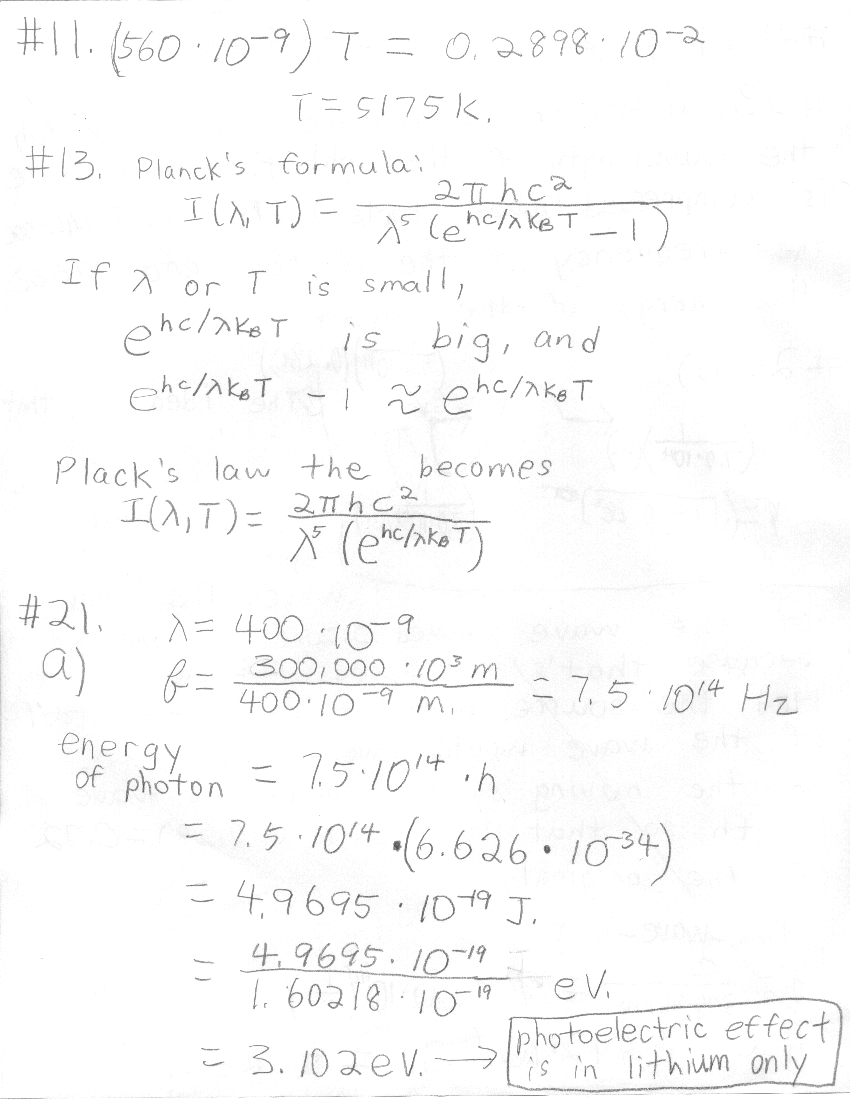 #11. (560 · 10⁻⁹) T = 0.2898 · 10⁻²
T = 5175 K.
#13. Planck's formula:
I(λ, T) = 2πhc² / λ⁵ (e^(hc/λk_BT) − 1)
If λ or T is small,
e^(hc/λk_BT) is big, and
e^(hc/λk_BT) − 1 ≈ e^(hc/λk_BT)
Plack's law the becomes
I(λ, T) = 2πhc² / λ⁵ (e^(hc/λk_BT))
#21. λ = 400 · 10⁻⁹
a) f = 300,000 · 10³ m / 400 · 10⁻⁹ m. = 7.5 · 10¹⁴ Hz
energy
of photon = 7.5 · 10¹⁴ · h
= 7.5 · 10¹⁴ · (6.626 · 10⁻³⁴)
= 4.9695 · 10⁻¹⁹ J.
= 4.9695 · 10⁻¹⁹ / 1.60218 · 10⁻¹⁹ eV.
= 3.102 eV. → photoelectric effect
is in lithium only